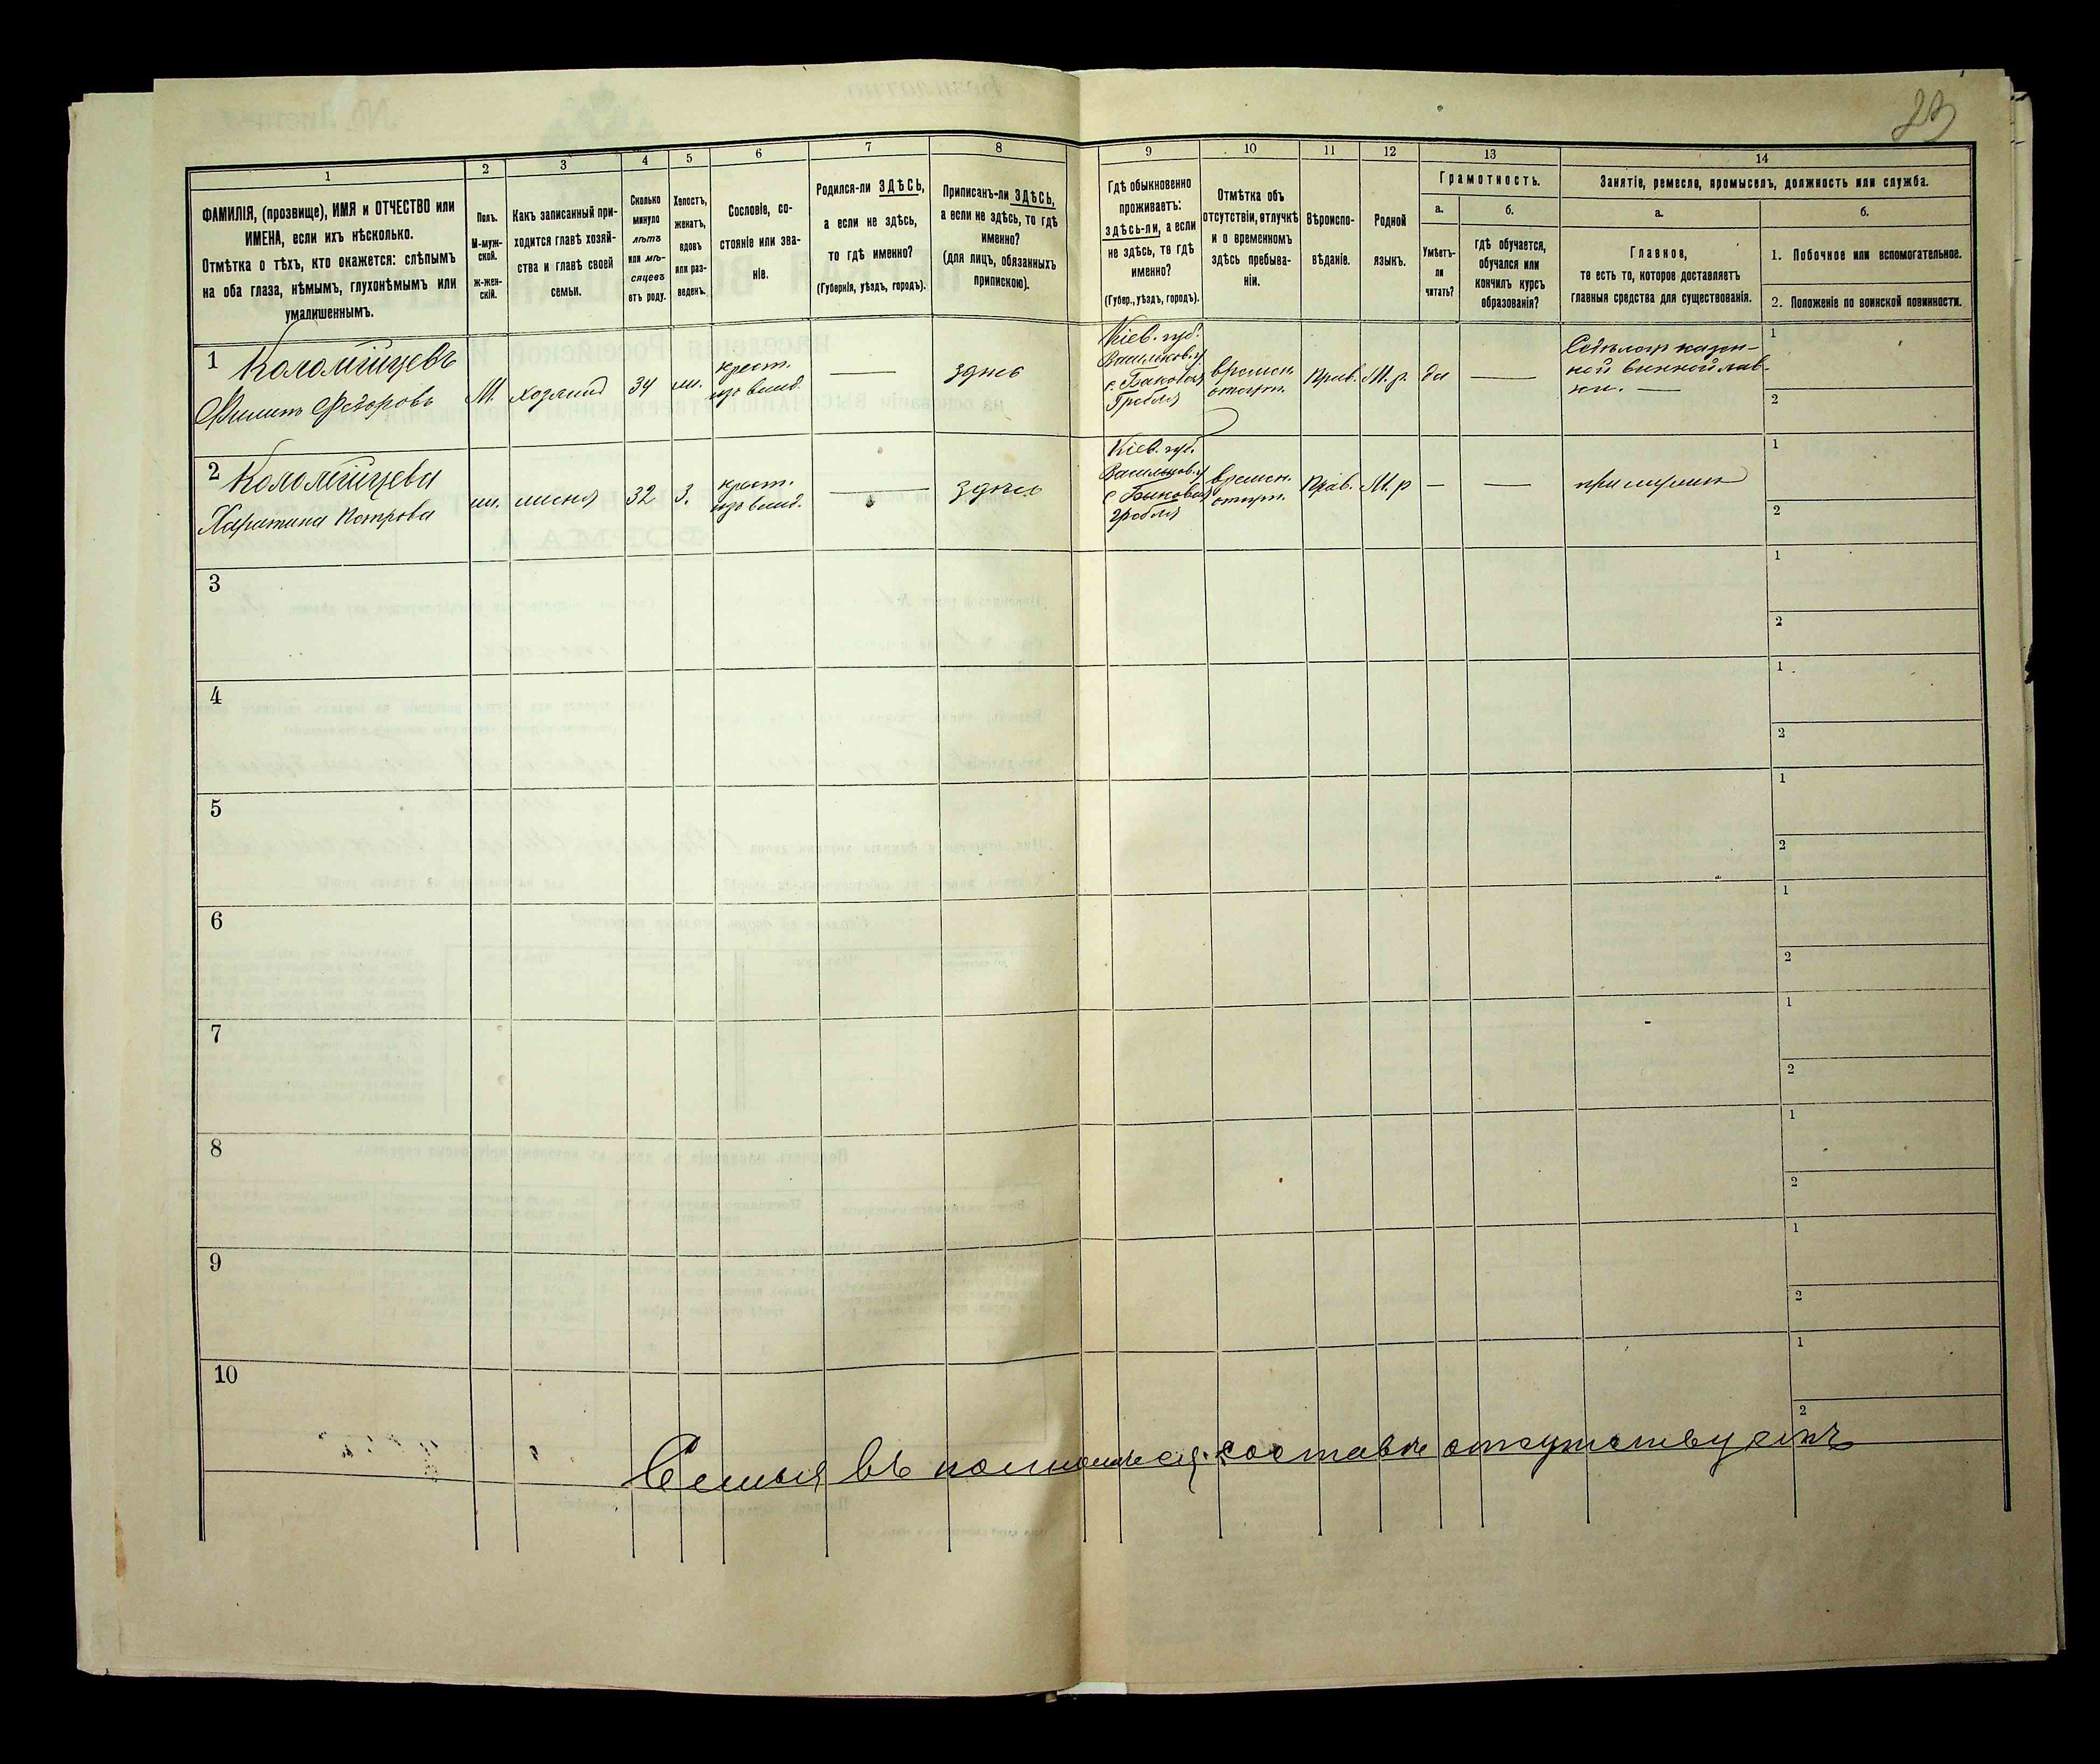 23
1
2
3
4
5
6
7
8
9
10
11
12
13
14
ФАМИЛІЯ, (прозвище), ИМЯ и ОТЧЕСТВО или
ИМЕНА, если ихъ нѣсколько.
Отмѣтка о тѣхъ, кто окажется: слѣпымъ
на оба глаза, нѣмымъ, глухонѣмымъ или
умалишеннымъ.
Полъ.
М-муж-
ской.
ж-жен-
скій.
Какъ записанный при-
ходится главѣ хозяй-
ства и главѣ своей
семьи.
Сколько
минуло
лѣтъ
или мѣ-
сяцевъ
отъ роду.
Холостъ,
женатъ,
вдовъ
или раз-
веденъ.
Сословіе, со-
стояніе или зва-
ніе.
Родился-ли ЗДѢСЬ,
а если не здѣсь,
то гдѣ именно?
(Губернія, уѣздъ, городъ).
Приписанъ-ли ЗДѢСЬ,
а если не здѣсь, то гдѣ
именно?
(для лицъ, обязанныхъ
припискою).
Гдѣ обыкновенно
проживаетъ:
здѣсь-ли, а если
не здѣсь, то гдѣ
именно?
(Губер., уѣздъ, городъ).
Отмѣтка объ
отсутствіи, отлучкѣ
и о временномъ
здѣсь пребыва-
ніи.
Вѣроиспо-
вѣданіе.
Родной
языкъ.
Грамотность.
а.
Умѣетъ-
ли
читать?
б.
гдѣ обучается,
обучался или
кончилъ курсъ
образованія?
Занятіе, ремесло, промыселъ, должность или служба.
а.
Главное,
то есть то, которое доставляетъ
главныя средства для существованія.
б.
1. Побочное или вспомогательное.
2. Положеніе по воинской повинности.
1 Коломійцевъ
Филипъ Федоровъ
М.
хозяинъ
34
жен.
крест.
изъ влад.
—
здѣсь
Кіев. губ.
Васильков. у
с. Баковая
Гребля
времен.
отсут.
Прав.
М. р.
да
—
Сидѣлецъ казен-
ной винной лав-
ки. —
1
2
2 Коломійцева
Харитина Петрова
ж.
жена
32
з.
крест.
изъ влад.
—
здѣсь
Кіев. губ.
Васильков. у
с Баковая
гребля
времен.
отсут.
Прав.
М. р
—
—
при мужѣ
1
2
3
1
2
4
1
2
5
1
2
6
1
2
7
1
2
8
1
2
9
1
2
10
1
2
Семья въ полномъ ея составѣ отсутствуетъ